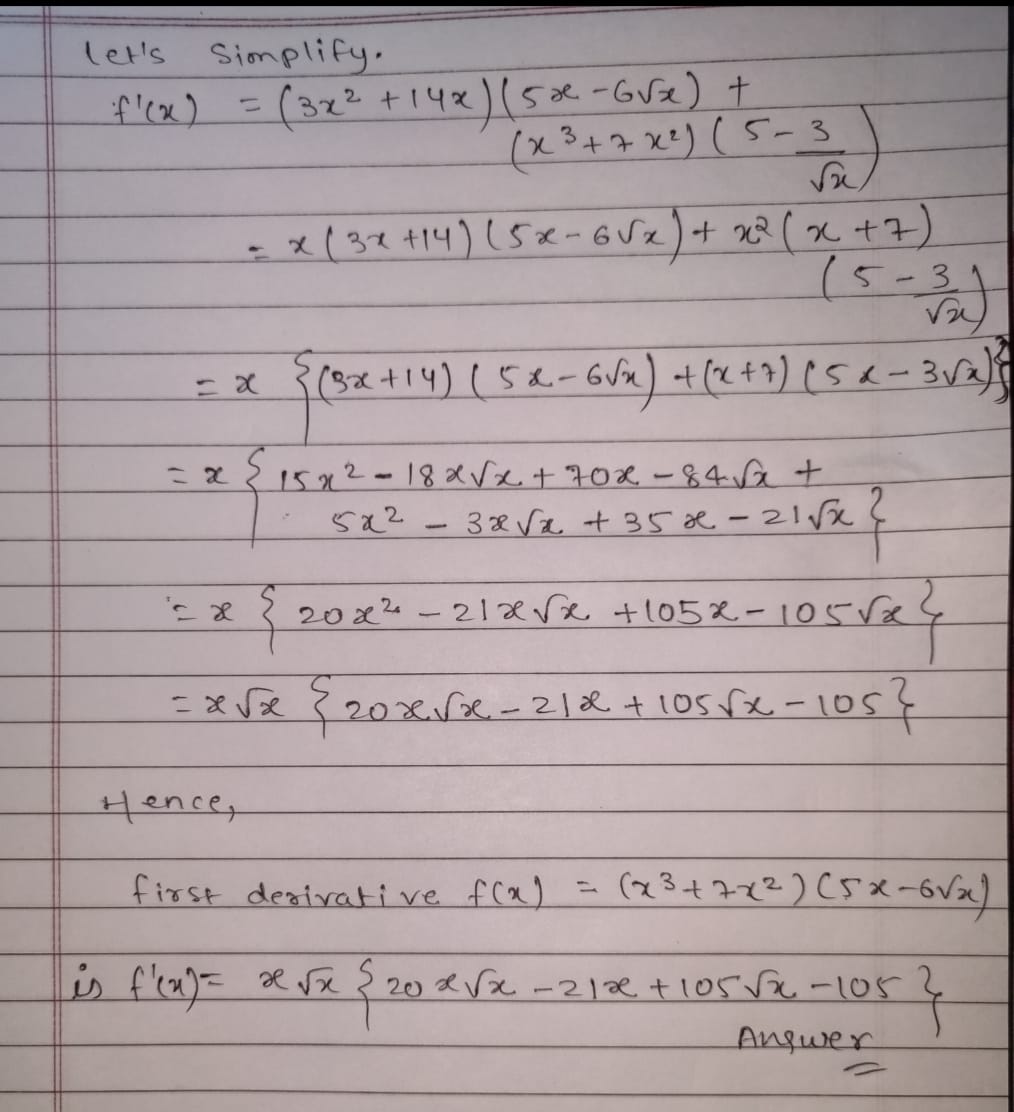 let's Simplify.
f'(x) = (3x² + 14x)(5x - 6√x) +
(x³ + 7x²)(5 - 3/√x)
= x(3x + 14)(5x - 6√x) + x²(x + 7)
(5 - 3/√x)
= x {(3x + 14)(5x - 6√x) + (x + 7)(5x - 3√x)}
= x { 15x² - 18x√x + 70x - 84√x +
5x² - 3x√x + 35x - 21√x }
= x { 20x² - 21x√x + 105x - 105√x }
= x√x { 20x√x - 21x + 105√x - 105 }
Hence,
first derivative f(x) = (x³ + 7x²)(5x - 6√x)
is f'(x) = x√x { 20x√x - 21x + 105√x - 105 }
Answer